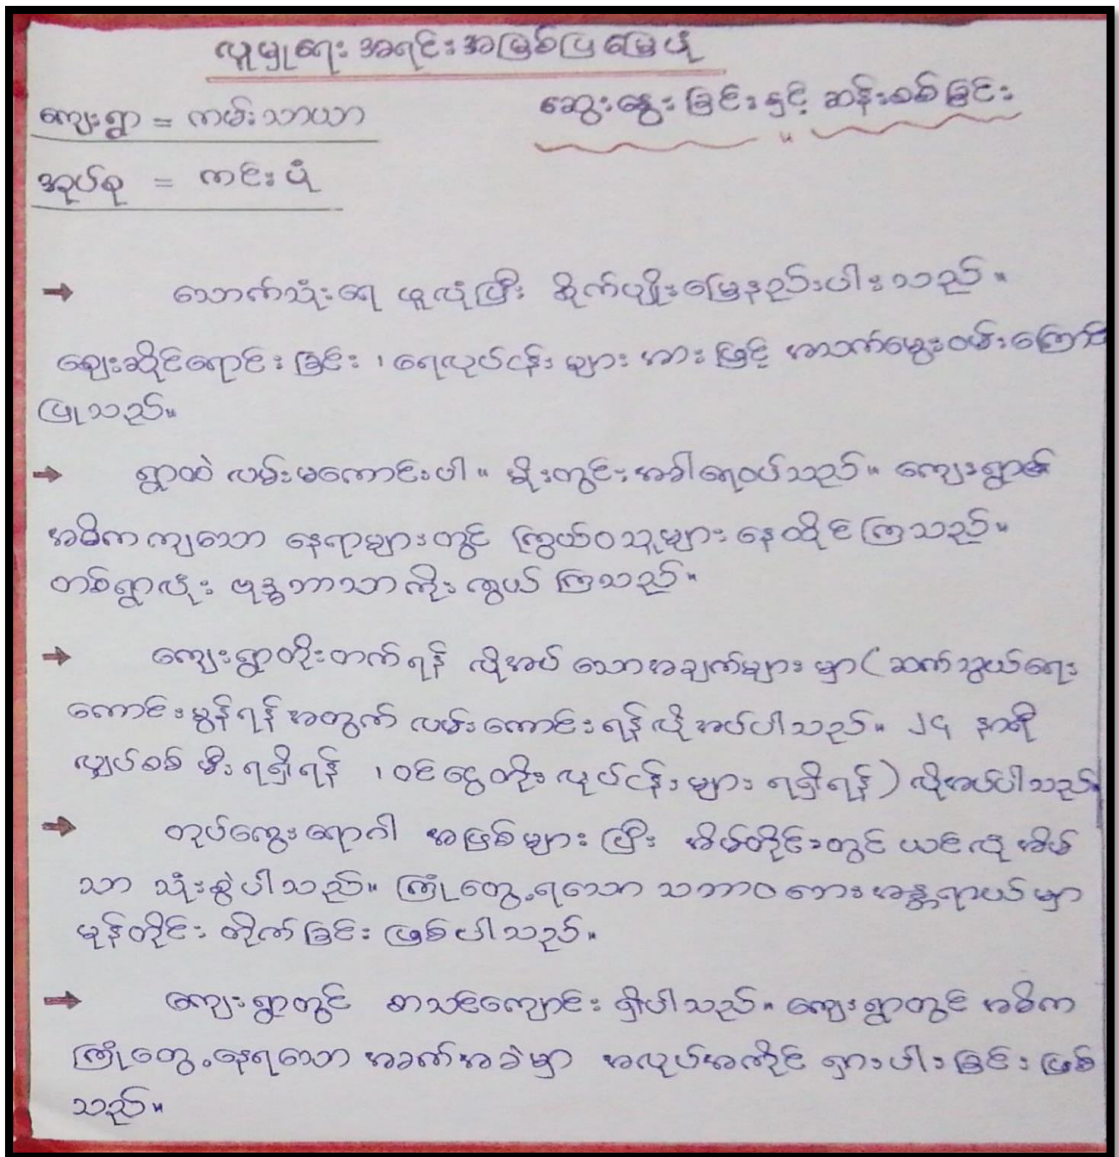 လူမှုရေး အရင်းအမြစ်ပြမြေပုံ
ဆွေးနွေးခြင်းနှင့် ဆန်းစစ်ခြင်း
ကျေးရွာ = ကမ်းသာယာ
အုပ်စု = ကင်းပုံ
→ သောက်သုံးရေ ယူလုံပြီး စိုက်ပျိုးမြေနည်းပါးသည်။
ဈေးဆိုင်ရောင်းခြင်း၊ ရေလုပ်ငန်းများအားဖြင့် အသက်မွေးဝမ်းကြောင်း
ပြုသည်။
→ ရွာထဲ လမ်းမကောင်းပါ။ မိုးတွင်းအခါရေဝပ်သည်။ ကျေးရွာ၏
အဓိကကျသော နေရာများတွင် ကြွယ်ဝသူများ နေထိုင်ကြသည်။
တစ်ရွာလုံး ဗုဒ္ဓဘာသာကိုးကွယ်ကြသည်။
→ ကျေးရွာတိုးတက်ရန် လိုအပ်သောအချက်များမှာ (ဆက်သွယ်ရေး
ကောင်းမွန်ရန်အတွက် လမ်းကောင်းရန်လိုအပ်ပါသည်။ ၂၄ နာရီ
လျှပ်စစ် မီးရရှိရန်၊ ဝင်ငွေတိုးလုပ်ငန်းများ ရရှိရန်) လိုအပ်ပါသည်။
→ တုပ်ကွေးရောဂါ အဖြစ်များပြီး အိမ်တိုင်းတွင် ယင်လုံအိမ်
သာ သုံးစွဲပါသည်။ ကြုံတွေ့ရသော သဘာဝဘေးအန္တရာယ်မှာ
မုန်တိုင်းတိုက်ခြင်းဖြစ်ပါသည်။
→ ကျေးရွာတွင် စာသင်ကျောင်း ရှိပါသည်။ ကျေးရွာတွင် အဓိက
ကြုံတွေ့နေရသော အခက်အခဲမှာ အလုပ်အကိုင် ရှားပါးခြင်းဖြစ်
သည်။